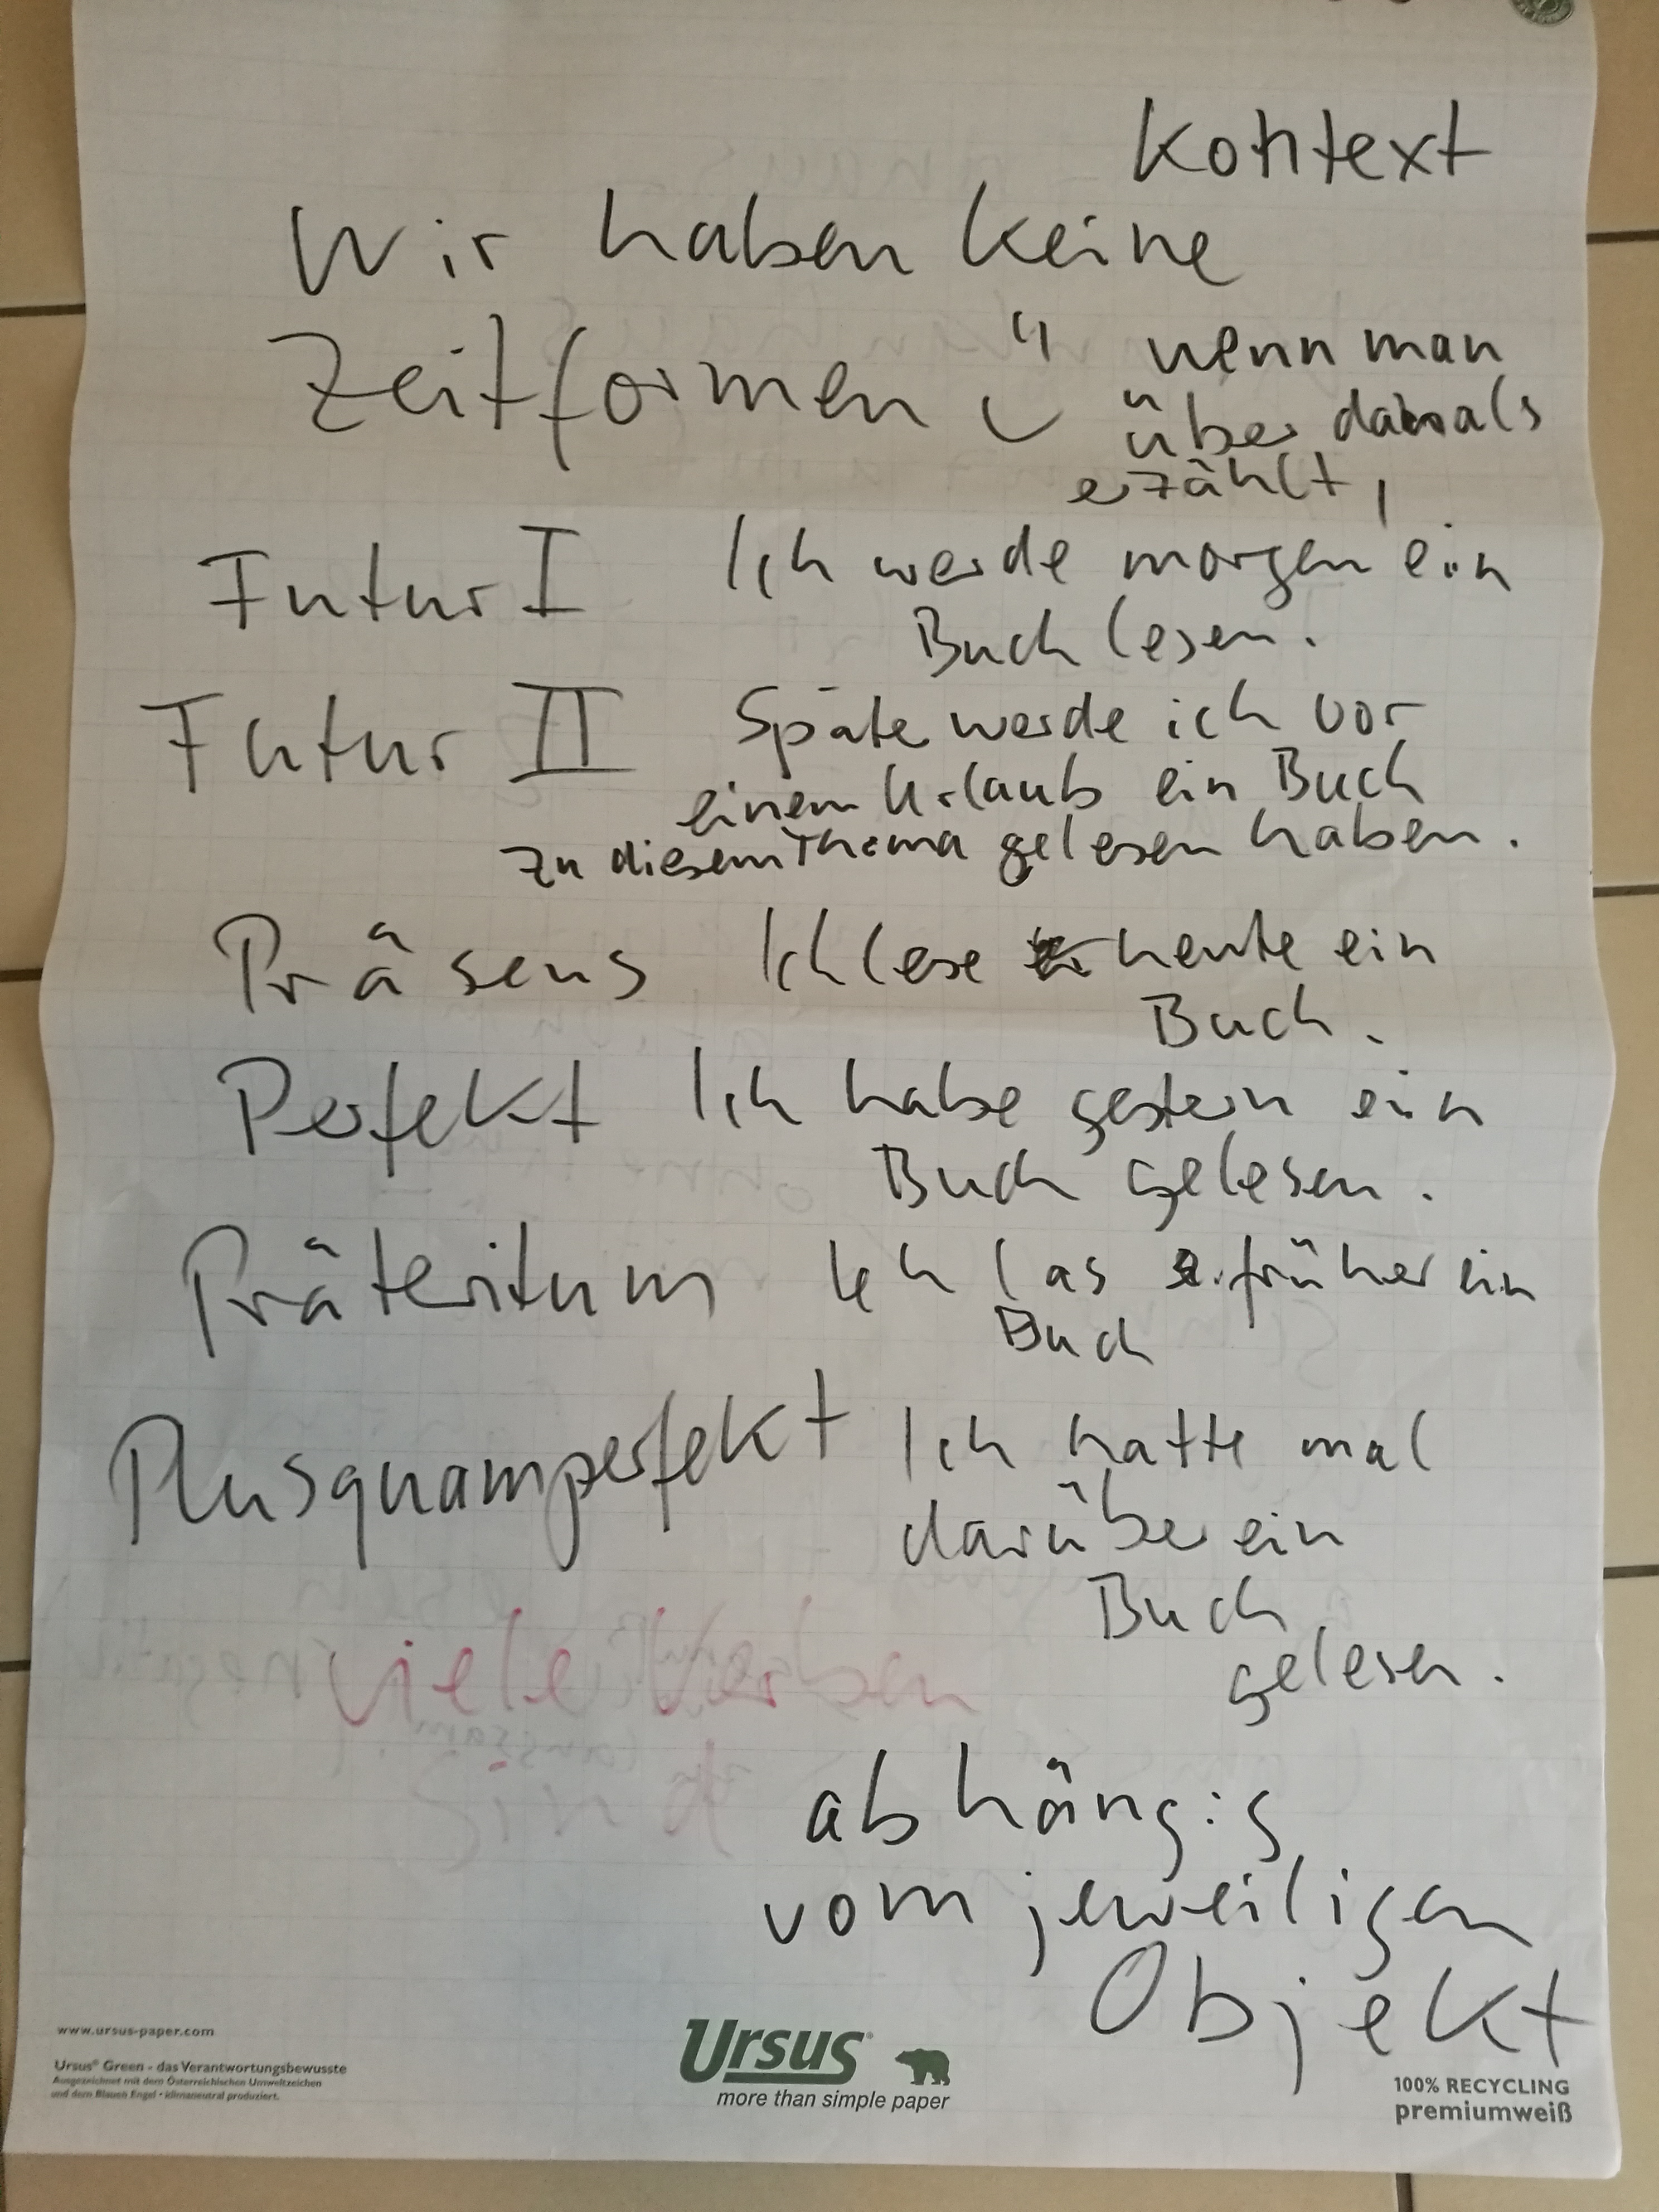 Kontext
Wir haben keine
Zeitformen
wenn man
über damals
erzählt,
Futur I Ich werde morgen ein
Buch lesen.
Futur II Später werde ich vor
einem Urlaub ein Buch
zu diesem Thema gelesen haben.
Präsens Ich lese heute ein
Buch.
Perfekt Ich habe gestern ein
Buch gelesen.
Präteritum Ich las früher ein
Buch
Plusquamperfekt Ich hatte mal
darüber ein
Buch
gelesen.
viele Verben
sind
abhängig
vom jeweiligen
Objekt
www.ursus-paper.com
Ursus® Green - das Verantwortungsbewusste
Ausgezeichnet mit dem Österreichischen Umweltzeichen
und dem Blauen Engel • klimaneutral produziert.
Ursus®
more than simple paper
100% RECYCLING
premiumweiß